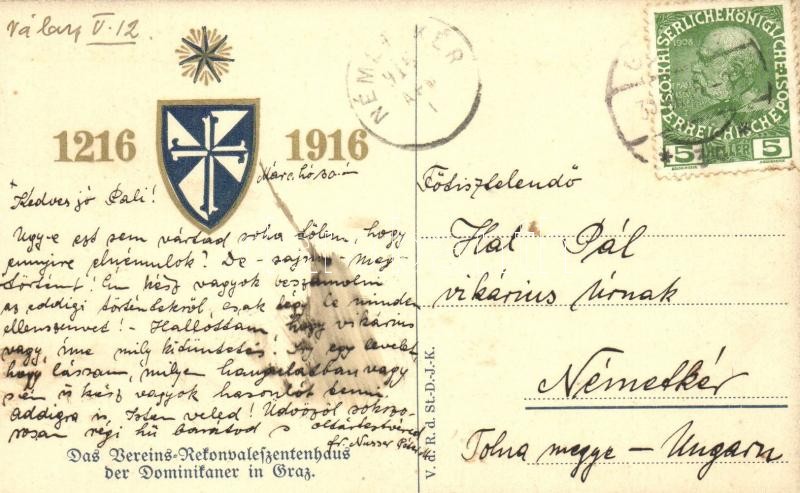 Válasz V. 12.
1216 1916
NÉMETKÉR
Márc. hó 30-án
Kedves jó Pali!
Ugy-e ezt sem vártad soha tőlem, hogy
ennyire elnémulok? De – sajnos – meg-
történt! Én kész vagyok beszámolni
az eddigi történtekről, csak légy le minden
ellenszenvet! – Hallottam, hogy vikárius
vagy, íme mily kitüntetés! Írj egy levelet,
hogy lássam, milyen hangulatban vagy
s én is kész vagyok hasonlót tenni
addigra is, Isten veled! Üdvözöl sokszo-
rosan régi hű barátod s oltártestvéred
fr. Nusser
Das Vereins-Rekonvaleszentenhaus
der Dominikaner in Graz.
V. d. R. d. St.-D.-J.-K.
K.K. ÖSTERREICHISCHE POST
KAISERLICHE KÖNIGLICHE
1908
5 HELLER 5
Főtisztelendő
Hal Pál
vikárius Úrnak
Németkér
Tolna megye – Ungarn